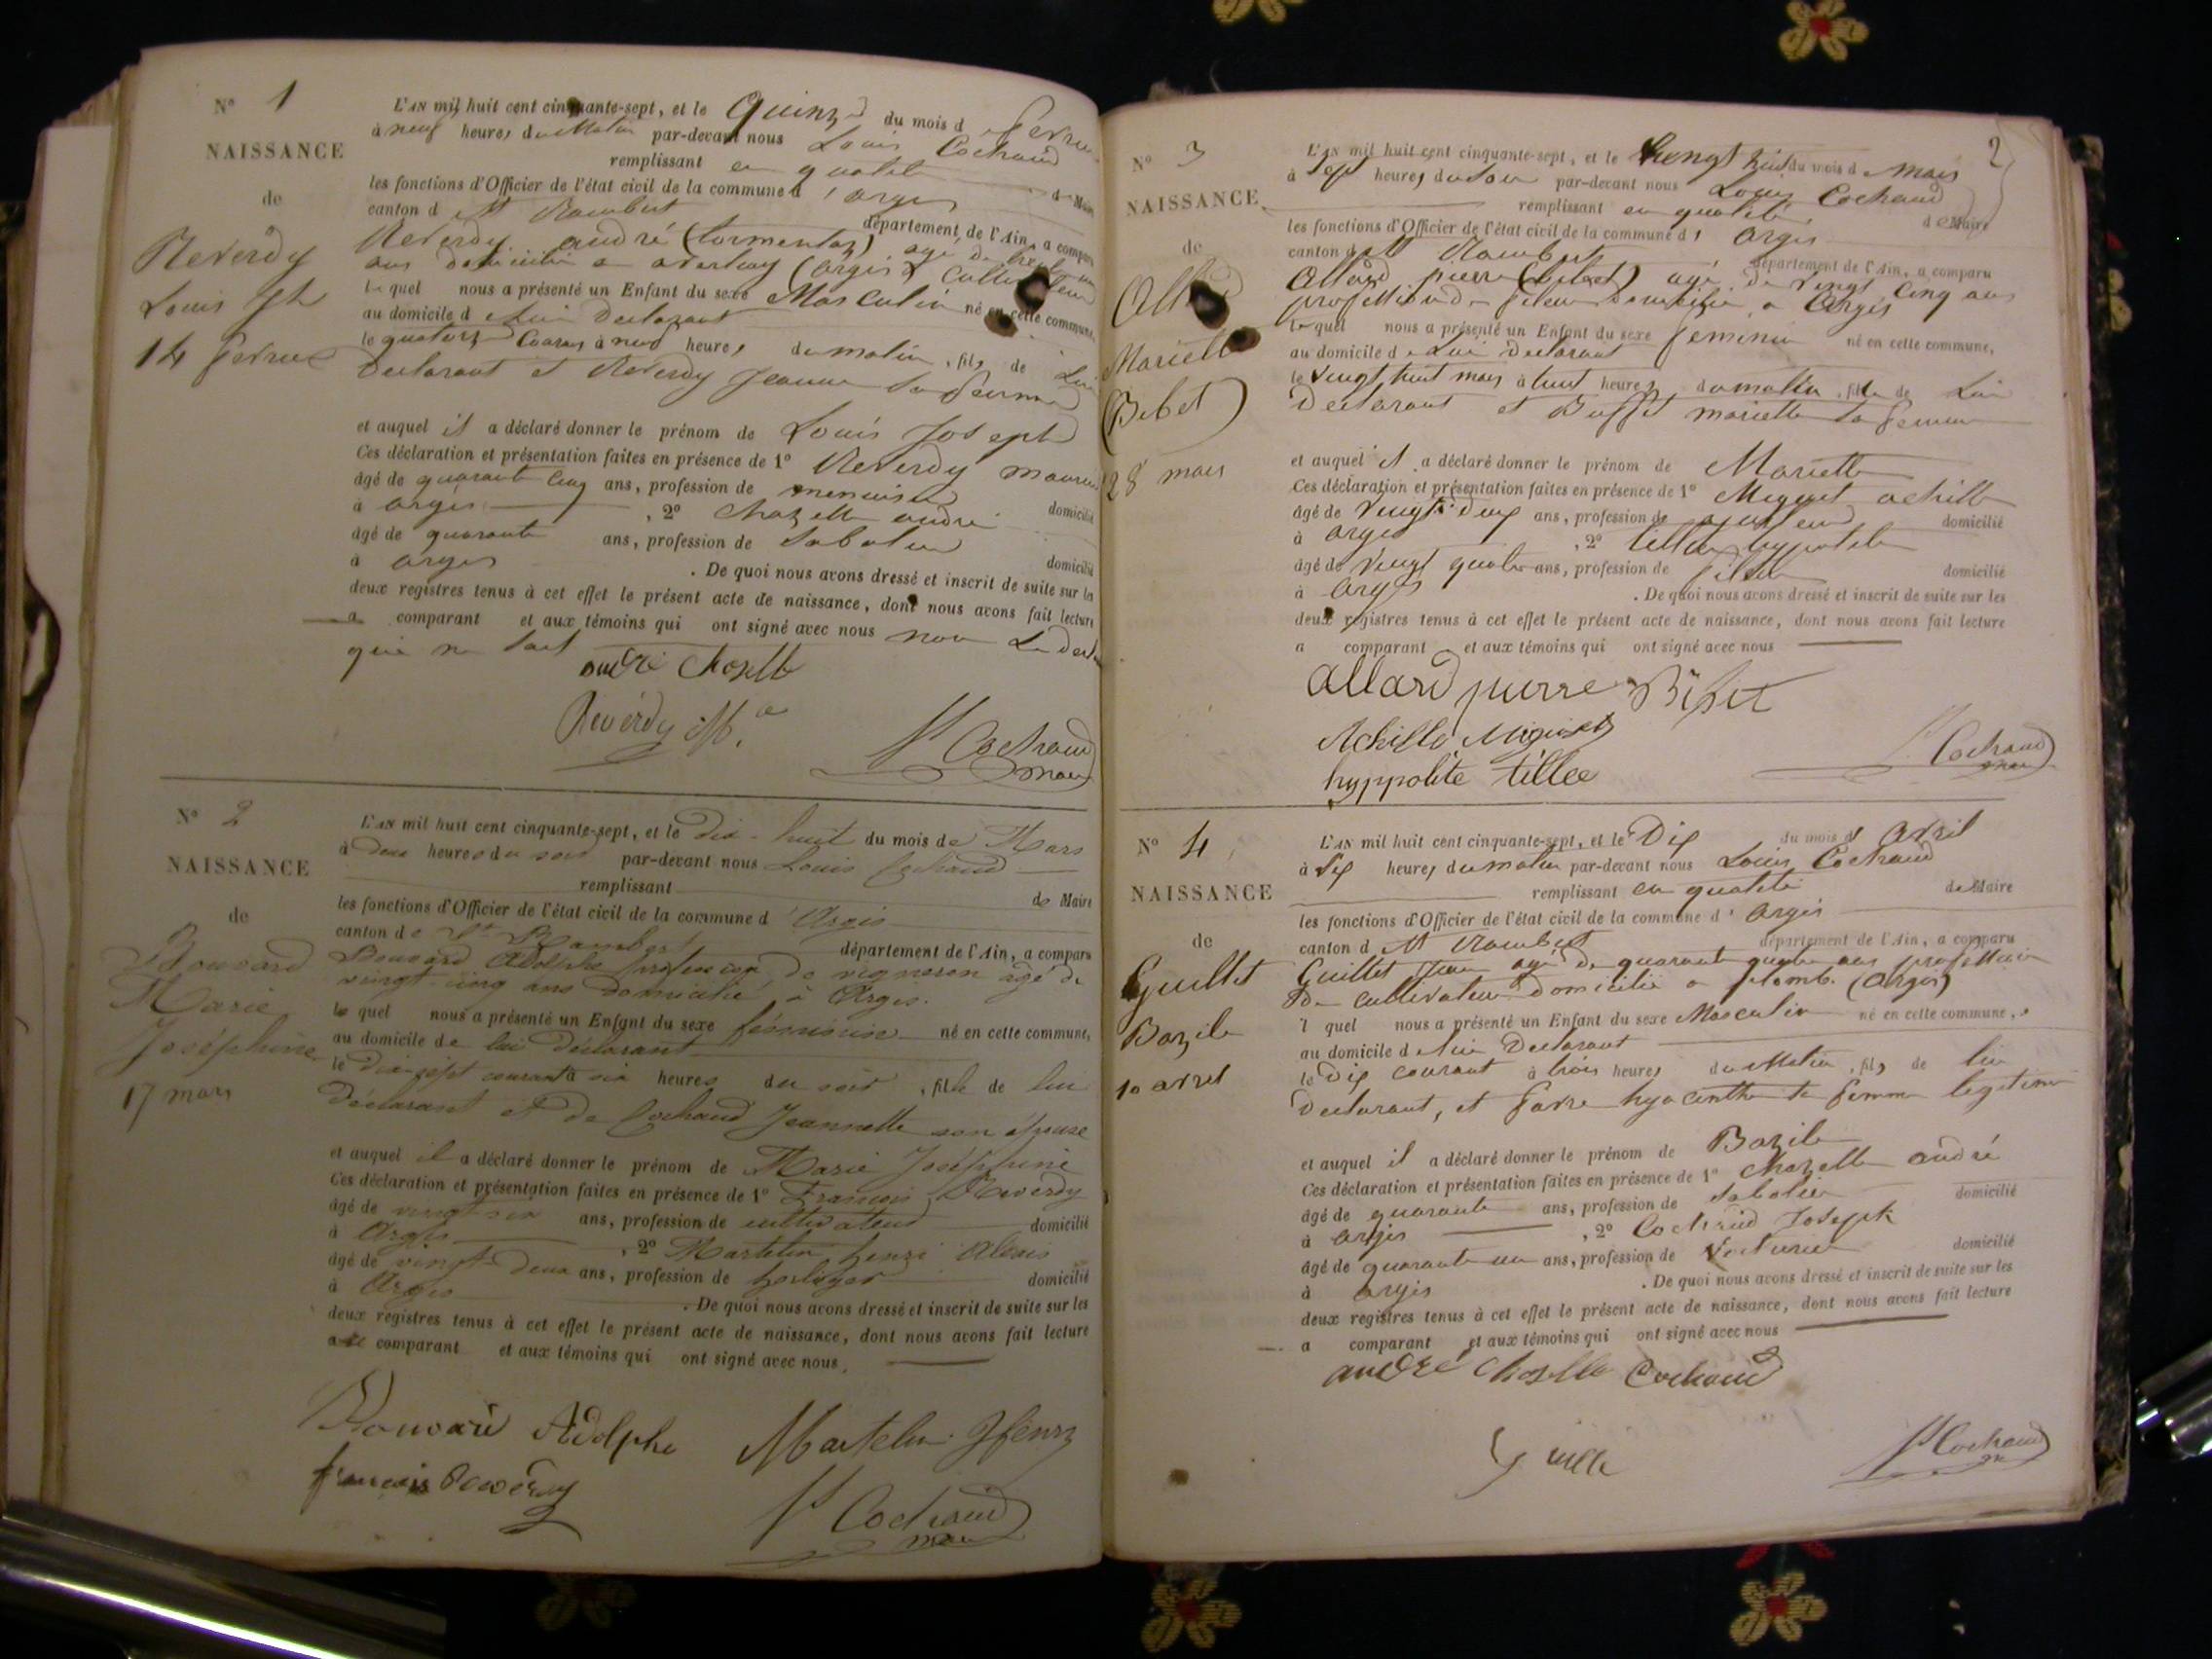 N° 1
NAISSANCE
de
Reverdy
Louis Jh
14 fevrie
L'AN mil huit cent cinquante-sept, et le Quinze du mois d fevrie
à neuf heures du Matin par-devant nous Louis Cochaud
remplissant en qualité de Maire
les fonctions d'Officier de l'état civil de la commune d'argis
canton d St Rambert département de l'Ain, a comparu
Reverdy andré (tormentaz) agé de trente
ans domicilié a (argis) Cultivateur
lequel nous a présenté un Enfant du sexe Masculin né en cette commune,
au domicile de lui Declarant
le quatorze Courant à neuf heures du matin, fils de Lui
Declarant et Reverdy Jeanne sa femme
et auquel il a déclaré donner le prénom de Louis Joseph
Ces déclaration et présentation faites en présence de 1° Reverdy
âgé de quarante cinq ans, profession de menuisier domicilié
à argis, 2° Chazelle andré
âgé de quarante ans, profession de Sabotier domicilié
à argis. De quoi nous avons dressé et inscrit de suite sur les
deux registres tenus à cet effet le présent acte de naissance, dont nous avons fait lecture
a comparant et aux témoins qui ont signé avec nous non Le
qui ne sait
andré Chazelle
Reverdy M.
L Cochaud
maire
N° 2
NAISSANCE
de
Bouvard
Marie
Joséphine
17 mars
L'AN mil huit cent cinquante-sept, et le dix-huit du mois de Mars
à deux heures du soir par-devant nous Louis Cochaud
remplissant de Maire
les fonctions d'Officier de l'état civil de la commune d'Argis
canton de St Rambert département de l'Ain, a comparu
Bouvard Adolphe profession de vigneron âgé de
vingt-cinq ans domicilié à Argis.
lequel nous a présenté un Enfant du sexe féminin né en cette commune,
au domicile de lui déclarant
le dix-sept courant à six heures du soir, fille de lui
déclarant et de Cochaud Jeannette son épouse
et auquel il a déclaré donner le prénom de Marie Joséphine
Ces déclaration et présentation faites en présence de 1° François Reverdy
âgé de vingt-six ans, profession de cultivateur domicilié
à Argis, 2° Martelin henri Alexis
âgé de vingt-deux ans, profession de horloger domicilié
à Argis. De quoi nous avons dressé et inscrit de suite sur les
deux registres tenus à cet effet le présent acte de naissance, dont nous avons fait lecture
au comparant et aux témoins qui ont signé avec nous.
Bouvard Adolphe Martelin Henry
françois Reverdy
L Cochaud
maire
2
N° 3
NAISSANCE
de
Allard
Mariette
(Bibet)
28 mars
L'AN mil huit cent cinquante-sept, et le Vengt huit du mois d mars
à Sept heures du Soir par-devant nous Louis Cochaud
remplissant en qualité de Maire
les fonctions d'Officier de l'état civil de la commune d'Argis
canton d St Rambert département de l'Ain, a comparu
Allard pierre (bibet) agé de Vengt Cinq ans
profession de fileur domicilié a Argis
lequel nous a présenté un Enfant du sexe feminin né en cette commune,
au domicile de Lui Declarant
le Vengt huit mars à huit heures du matin, fille de Lui
Declarant et Buffet mariette sa femme
et auquel il a déclaré donner le prénom de Mariette
Ces déclaration et présentation faites en présence de 1° Miguet achille
âgé de Vengt Deux ans, profession de domicilié
à argis, 2° tillée hypolite
âgé de Vengt quatre ans, profession de fileur domicilié
à argis. De quoi nous avons dressé et inscrit de suite sur les
deux registres tenus à cet effet le présent acte de naissance, dont nous avons fait lecture
a comparant et aux témoins qui ont signé avec nous
allard pierre Bibet
Achille Miguet
hyppolite tillée
L Cochaud
maire
N° 4
NAISSANCE
de
Guillet
Bazile
10 avril
L'AN mil huit cent cinquante-sept, et le Dix du mois d avril
à Six heures du matin par-devant nous Louis Cochaud
remplissant en qualité de Maire
les fonctions d'Officier de l'état civil de la commune d'argis
canton d St Rambert département de l'Ain, a comparu
Guillet Jean agé de quarante quatre ans profession
de cultivateur domicilié a plomb. (Argis)
lequel nous a présenté un Enfant du sexe Masculin né en cette commune,
au domicile de lui Declarant
le Dix courant à trois heures du Matin, fils de lui
Declarant, et favre hyacinthe sa femme legitime
et auquel il a déclaré donner le prénom de Bazile
Ces déclaration et présentation faites en présence de 1° Chazelle andré
âgé de quarante ans, profession de Sabotier domicilié
à argis, 2° Cochaud Joseph
âgé de quarante un ans, profession de Voiturier domicilié
à argis. De quoi nous avons dressé et inscrit de suite sur les
deux registres tenus à cet effet le présent acte de naissance, dont nous avons fait lecture
a comparant et aux témoins qui ont signé avec nous
andré Chazelle Cochaud
L Cochaud